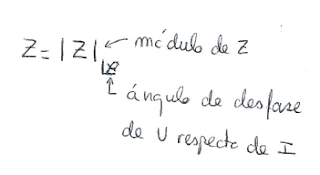 Z = |Z| ← módulo de Z
ángulo de desfase
de U respecto de I